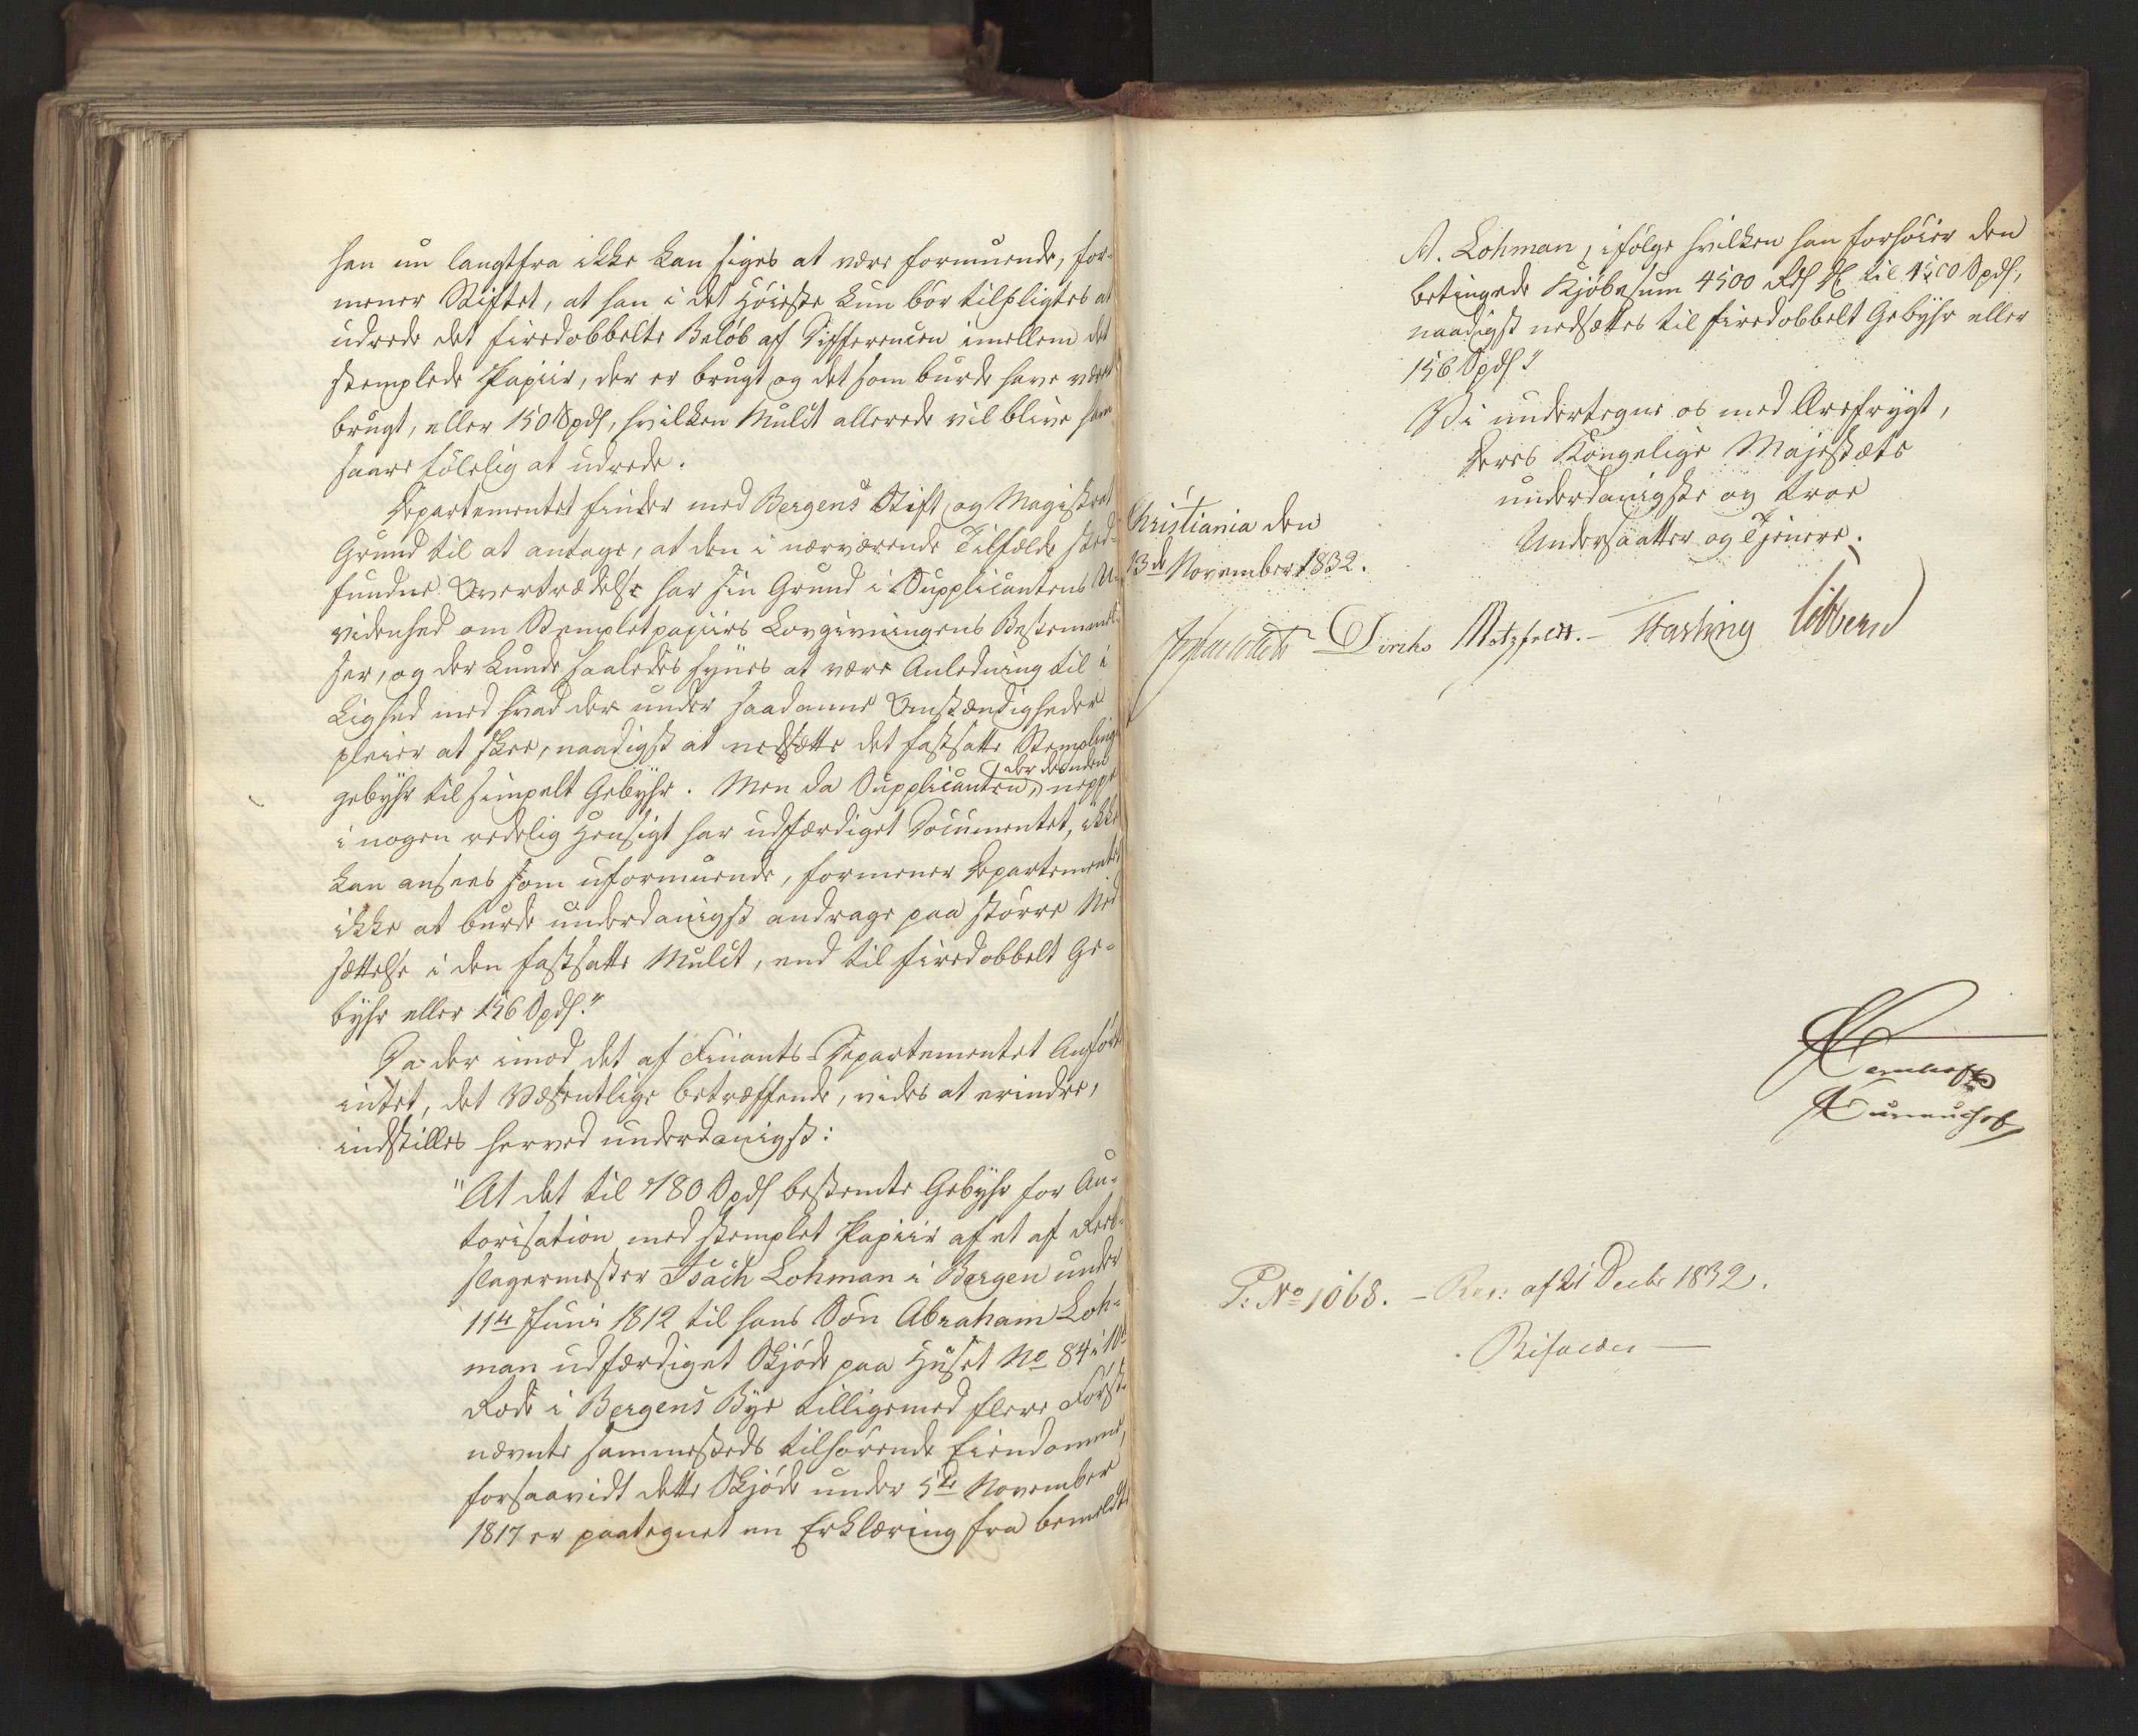 han nu langtfra ikke kan siges at være formuende, for-
mener Stiftet, at han i det Høieste kun bør tilpligtes at
udrede det firedobbelte Beløb af Differencen imellem det
stemplede Papiir, der er brugt og det som burde have været
brugt, eller 150 Spd, hvilken Mulct allerede vil blive ham
saare følelig at udrede.
Departementet finder med Bergens Stift og Magistrat
Grund til at antage, at den i nærværende Tilfælde sted-
fundne Overtrædelse har sin Grund i Supplicantens U-
videnhed om Stempletpapiirs Lovgivningens Bestemmel-
ser, og der kunde saaledes synes at være Anledning til i
Lighed med hvad der under saadanne Omstændigheder
pleier at skee, naadigst at nedsætte det fastsatte Stemplings
gebyhr til simpelt Gebyhr. Men da Supplicanten, der desuden neppe
i nogen redelig Hensigt har udfærdiget Documentet, ikke
kan ansees som uformuende, formener Departementet
ikke at burde underdanigst andrage paa større Ned-
sættelse i den fastsatte Mulct, end til firedobbelt Ge-
byhr eller 156 Spd."
Da der imod det af Finants-Departementet Anførte
intet, det Væsentlige betræffende, vides at erindre,
indstilles herved underdanigst:
"At det til 780 Spd bestemte Gebyhr for Au-
torisation med stemplet Papiir af et af Reeb-
slagermester Isach Lohman i Bergen under
11te Juni 1812 til hans Søn Abraham Loh-
man udfærdiget Skjøde paa Huset No 84 i 10de
Rode i Bergens Bye tilligemed flere Først-
nævnte sammesteds tilhørende Eiendomme,
forsaavidt dette Skjøde under 5te November
1817 er paategnet en Erklæring fra bemeldte
A. Lohman, ifølge hvilken han forhøier den
betingede Kjøbesum 4500 Rd til 1500 Spd,
naadigst nedsættes til firedobbelt Gebyhr eller
156 Spd."
Vi undertegne os med Ærefrygt,
Deres Kongelige Majestæts
underdanigste og troe
Undersaatter og Tjenere.
Christiania den
13de November 1832.
Collett Diriks Motzfeldt. - Fasting Sibbern
P: No 1068. - Res: af 21 Decbr 1832.
Bifaldes